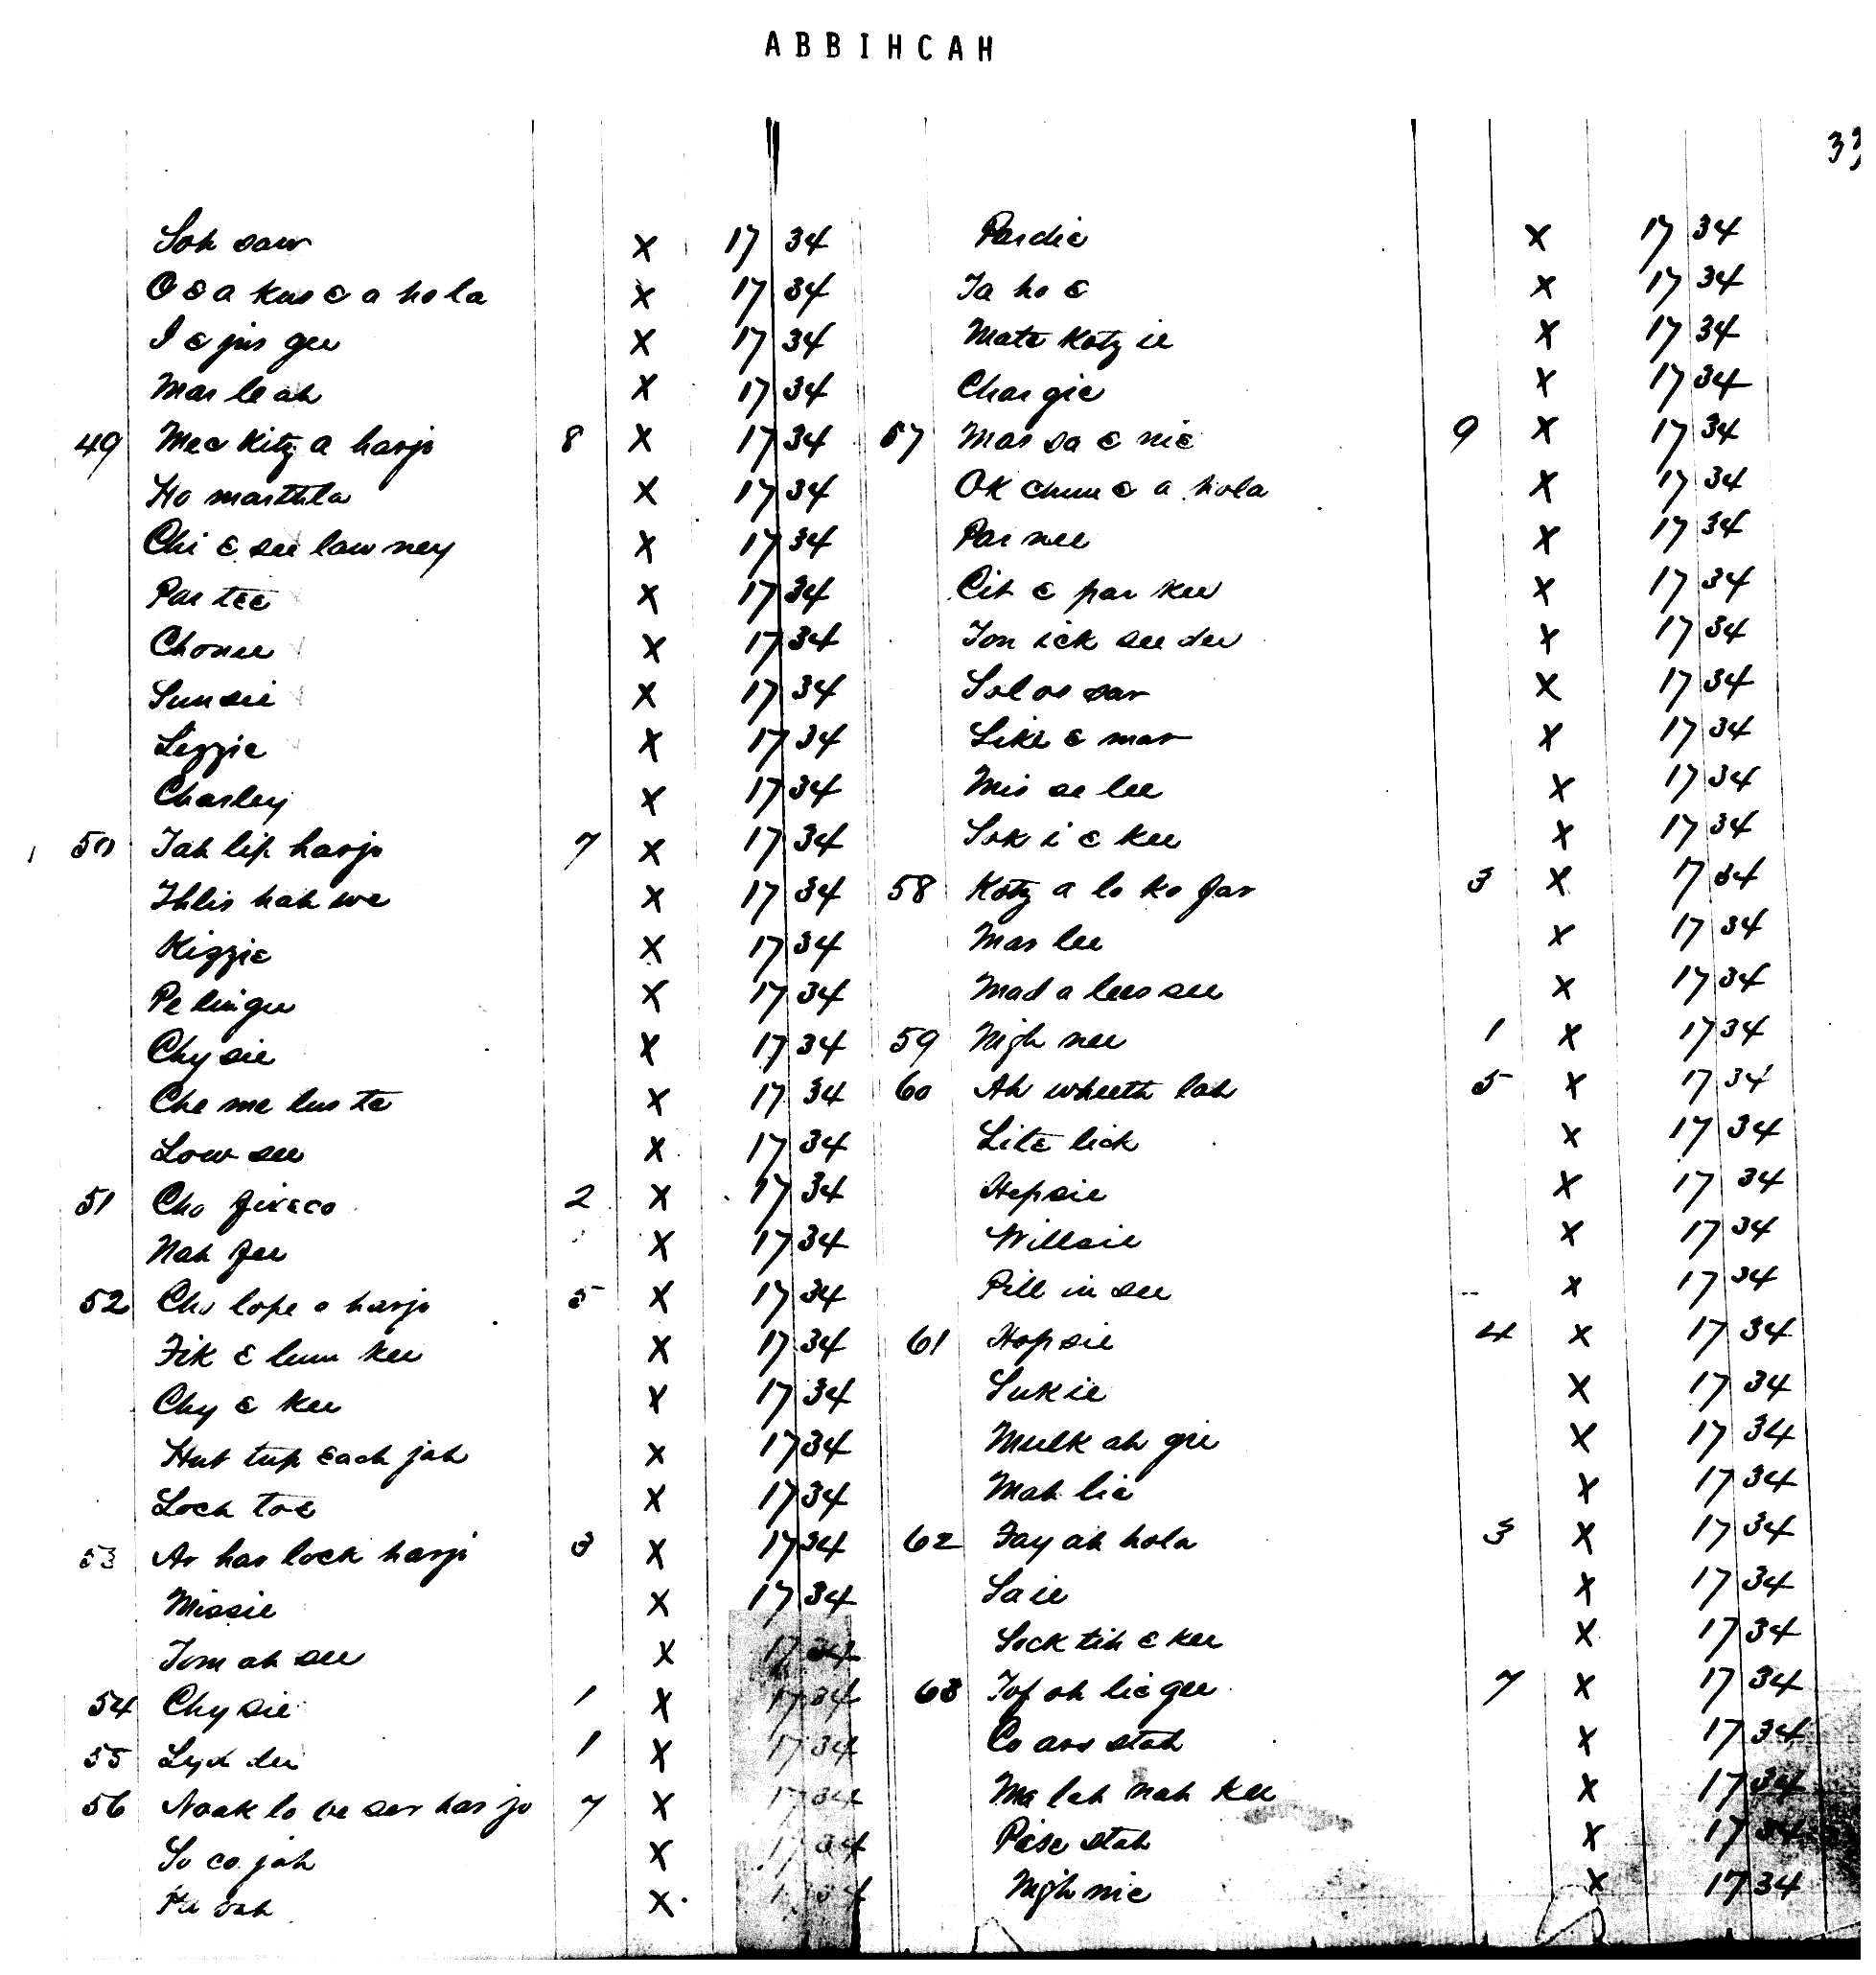 ABBIHCAH
33
Soh saw X 17 34
O E a kus E a ho la X 17 34
I E jus gee X 17 34
Mar le ah X 17 34
49 Mec Kitz a harjo 8 X 17 34
Ho marthla X 17 34
Chi E see law ney X 17 34
Par tee X 17 34
Chonee X 17 34
Sunsie X 17 34
Lizzie X 17 34
Charley X 17 34
50 Tah lip harjo 7 X 17 34
Thlis hah we X 17 34
Kizzie X 17 34
Pe lingee X 17 34
Chy sie X 17 34
Che me lus te X 17 34
Low see X 17 34
51 Cho fixeco 2 X 17 34
Nah fee X 17 34
52 Cho lope o harjo 5 X 17 34
Fik E lum kee X 17 34
Chy E kee X 17 34
Hut tup each jah X 17 34
Loch toe X 17 34
53 Ar har lock harjo 3 X 17 34
Missie X 17 34
Tom ah see X 17 34
54 Chy sie 1 X 17 34
55 Lyd dee 1 X 17 34
56 Noak lo ce ser har jo 7 X 17 34
So co jah X 17 34
X 17 34
Pardie X 17 34
Ta ho E X 17 34
Mate Kotz ie X 17 34
Char gie X 17 34
57 Mar sa E nie 9 X 17 34
OK chun E a hola X 17 34
Par nee X 17 34
Cit E par kee X 17 34
Ton ick see dee X 17 34
Sol os sar X 17 34
Like E mar X 17 34
Mis se lee X 17 34
Sok i E kee X 17 34
58 Kotz a lo ko far 3 X 17 34
Mar lee X 17 34
Mad a lees see X 17 34
59 Nigh nee 1 X 17 34
60 Ah wheeth lah 5 X 17 34
Lite lick X 17 34
Hepsie X 17 34
Willsie X 17 34
Pill in see X 17 34
61 Hopsie 4 X 17 34
Sukie X 17 34
Mulk ah gie X 17 34
Mah lie X 17 34
62 Fay ah hola 3 X 17 34
Saie X 17 34
Sock tih E kee X 17 34
63 Tof oh lic gee 7 X 17 34
Co ars stah X 17 34
Ma lah nah kee X 17 34
Pase stah X 17 34
Nigh nie X 17 34